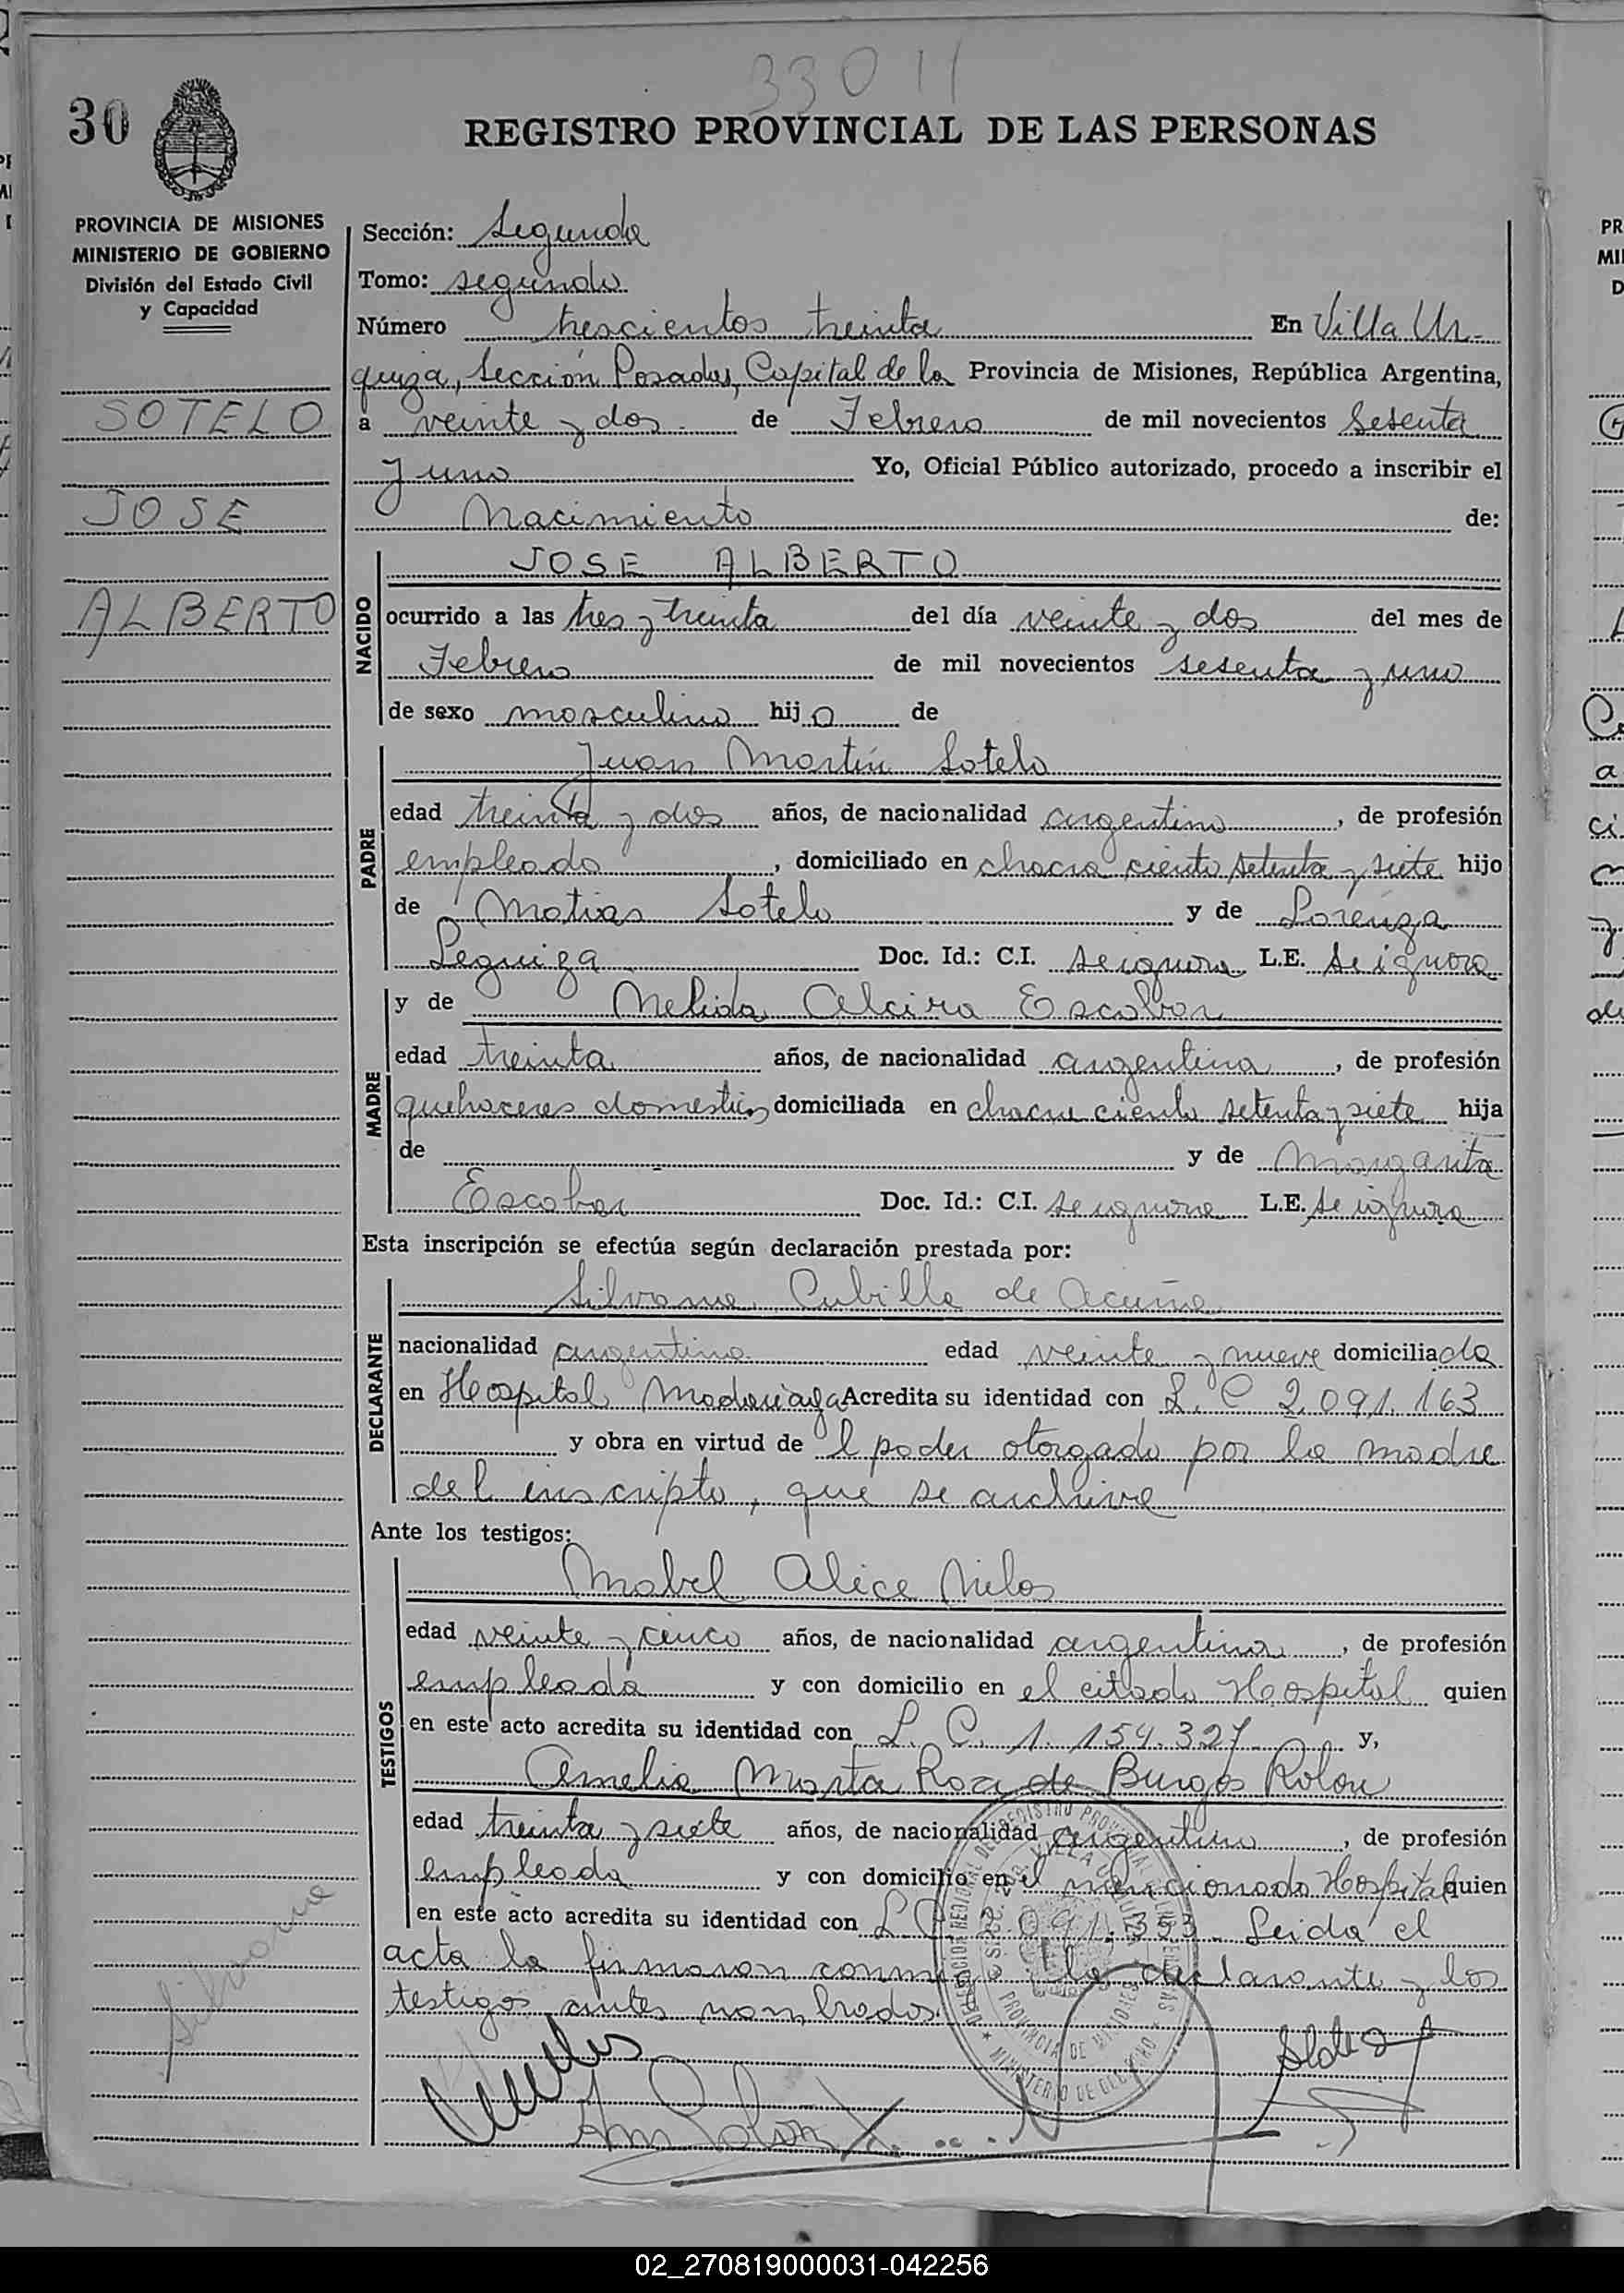 33011
30
REGISTRO PROVINCIAL DE LAS PERSONAS
PROVINCIA DE MISIONES
MINISTERIO DE GOBIERNO
División del Estado Civil
y Capacidad
SOTELO
JOSE
ALBERTO
Sección: Segunda
Tomo: segundo
Número trescientos treinta En Villa Ur-
quiza, Sección Posadas, Capital de la Provincia de Misiones, República Argentina,
a veinte y dos de Febrero de mil novecientos Sesenta
y uno Yo, Oficial Público autorizado, procedo a inscribir el
Nacimiento de:
NACIDO
JOSE ALBERTO
ocurrido a las tres y treinta del día veinte y dos del mes de
Febrero de mil novecientos sesenta y uno
de sexo masculino hijo de
PADRE
Juan Martín Sotelo
edad treinta y dos años, de nacionalidad argentino, de profesión
empleado, domiciliado en chacra ciento setenta y siete hijo
de Matias Sotelo y de Lorenza
Leguiza Doc. Id.: C.I. se ignora L.E. se ignora
MADRE
y de Nelida Alcira Escobar
edad treinta años, de nacionalidad argentina, de profesión
quehaceres domesticos domiciliada en chacra ciento setenta y siete hija
de - y de Margarita
Escobar Doc. Id.: C.I. se ignora L.E. se ignora
Esta inscripción se efectúa según declaración prestada por:
DECLARANTE
Silvana Cubilla de Acuña
nacionalidad argentina edad veinte y nueve domiciliada
en Hospital Madariaga Acredita su identidad con L. C 2.091.163
y obra en virtud de l poder otorgado por la madre
del inscripto, que se archiva
Ante los testigos:
TESTIGOS
Mabel Alice
edad veinte y cinco años, de nacionalidad argentina, de profesión
empleada y con domicilio en el citado Hospital quien
en este acto acredita su identidad con L. C. 1.154.327 y,
Amelia Marta Roa de Burgos Rolon
edad treinta y siete años, de nacionalidad argentina, de profesión
empleada y con domicilio en el mencionado Hospital quien
en este acto acredita su identidad con L C. 2.091.353. Leida el
acta la firmaron conmigo la declarante y los
testigos antes nombrados.
Silvana
02_270819000031-042256